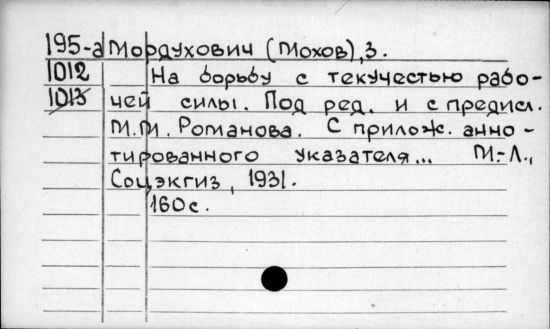 195-а Мордухович (Мохов), З.
1012 На борьбу с текучестью рабо-
1013 чей силы. Под ред. и с предисл.
М.М. Романова. С прилож. анно-
тированного указателя... М.-Л.,
Соцэкгиз, 1931.
160с.